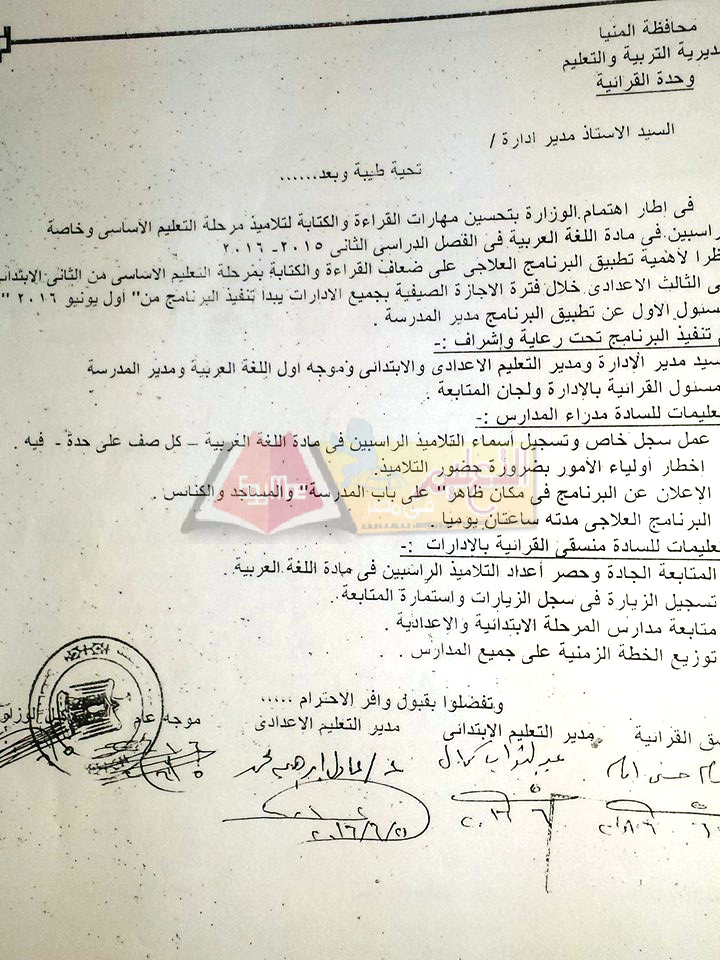 محافظة المنيا
مديرية التربية والتعليم
وحدة القرائية
السيد الاستاذ مدير ادارة /
تحية طيبة وبعد......
فى إطار اهتمام الوزارة بتحسين مهارات القراءة والكتابة لتلاميذ مرحلة التعليم الأساسى وخاصة
راسبين فى مادة اللغة العربية فى الفصل الدراسى الثانى ٢٠١٥- ٢٠١٦
ظرا لأهمية تطبيق البرنامج العلاجى على ضعاف القراءة والكتابة بمرحلة التعليم الاساسى من الثانى الإبتدا
ى الثالث الاعدادى خلال فترة الاجازة الصيفية بجميع الادارات يبدا تنفيذ البرنامج من" اول يونيو ٢٠١٦ "
سئول الاول عن تطبيق البرنامج مدير المدرسة .
م تنفيذ البرنامج تحت رعاية وإشراف :-
سيد مدير الإدارة ومدير التعليم الاعدادى والابتدائى وموجه اول اللغة العربية ومدير المدرسة
مسئول القرائية بالإدارة ولجان المتابعة .
عليمات للسادة مدراء المدارس :-
عمل سجل خاص وتسجيل أسماء التلاميذ الراسبين فى مادة اللغة العربية – كل صف على حدة - فيه .
اخطار أولياء الأمور بضرورة حضور التلاميذ.
الاعلان عن البرنامج فى مكان ظاهر" على باب المدرسة" والمساجد والكنائس .
البرنامج العلاجى مدته ساعتان يوميا .
عليمات للسادة منسقى القرائية بالإدارات :-
المتابعة الجادة وحصر أعداد التلاميذ الراسبين فى مادة اللغة العربية .
تسجيل الزيارة فى سجل الزيارات واستمارة المتابعة.
متابعة مدارس المرحلة الابتدائية والإعدادية .
توزيع الخطة الزمنية على جميع المدارس .
وتفضلوا بقبول وافر الاحترام .....
ق القرائية مدير التعليم الإبتدائى مدير التعليم الاعدادى موجه عام
حسنى امام عبدالتواب كمال عادل ابراهيم محمد
٢٠١٦/٦/